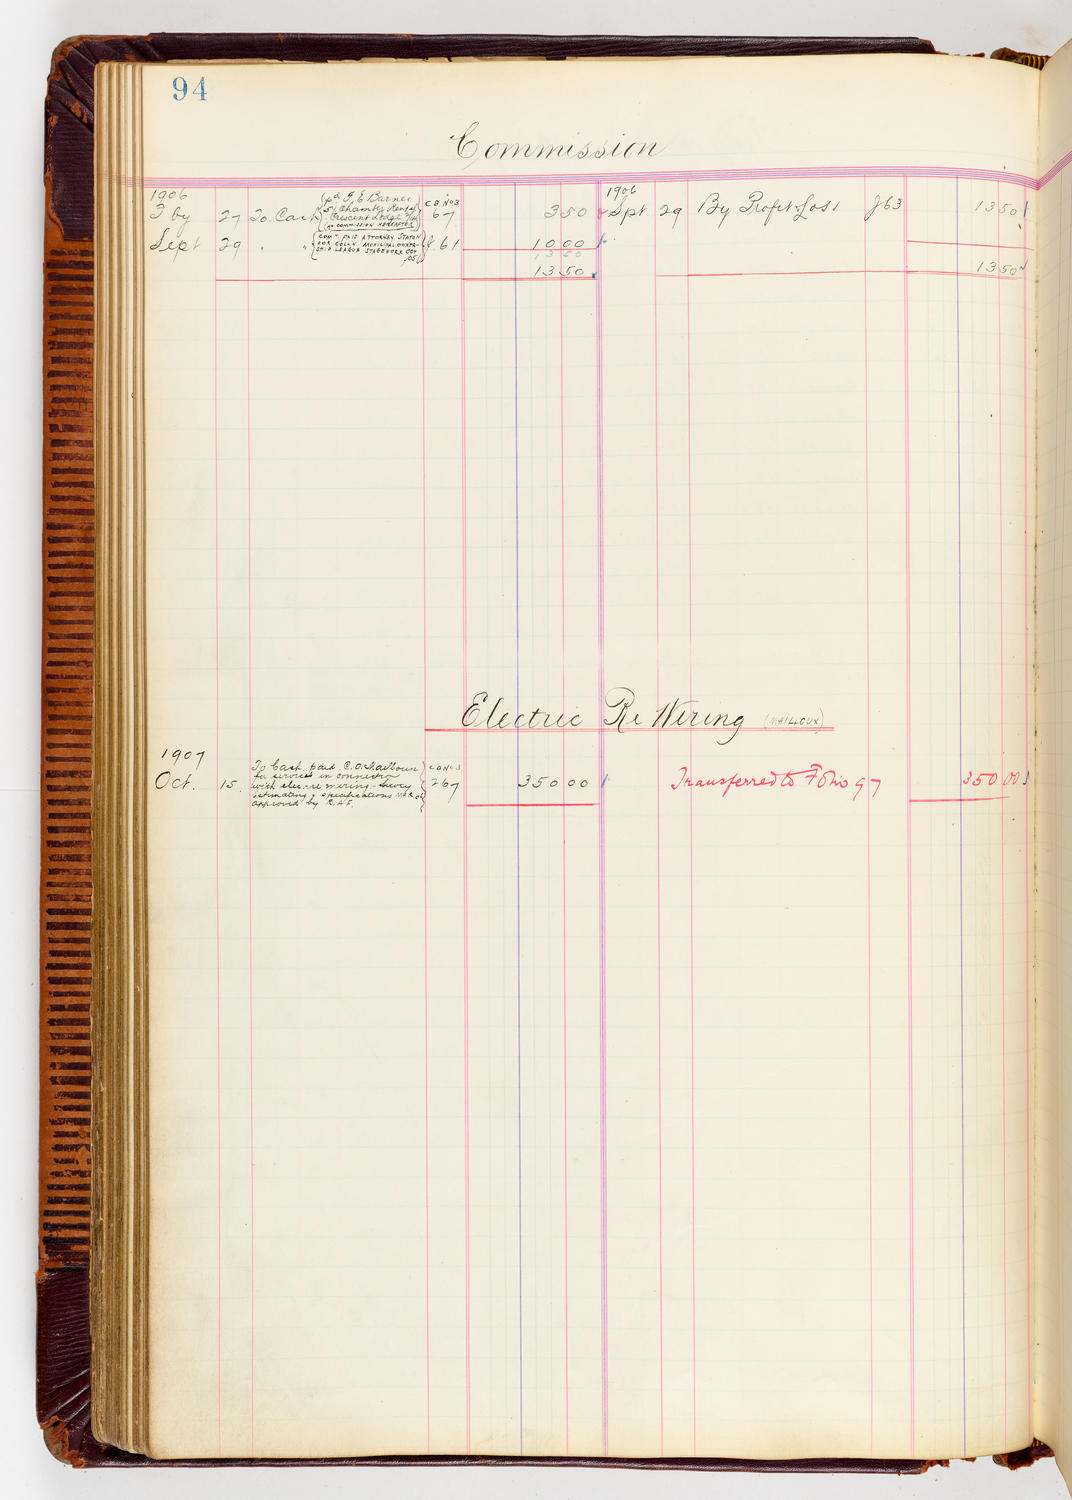 94
Commission
1906
Fby 27 To Cash pd. J. E. Barnes C.D. No3 67 3 50
5% Chamb's Rental
Crescent Lodge
(no commission hereafter)
Sept 29 " " Com'n. paid Attorney J 61 10 00
for coll'n Municipal Owner-
ship League Oct
05
13 50
13 50
1906
Spt 29 By Profit & Loss J63 13 50
13 50
Electric Re Wiring (MAILLOUX)
1907
Oct. 15. To Cash paid C.O. Mailloux C D No3 267 350 00
for services in connection
with elec. re wiring - survey
estimating & specifications
approved by R.A.F.
Transferred to Folio 97 350 00